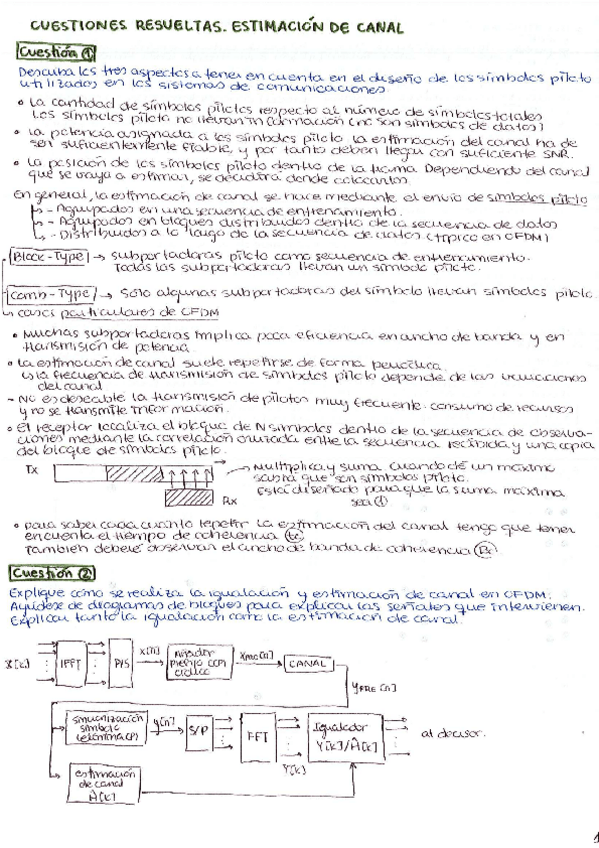 CUESTIONES RESUELTAS. ESTIMACIÓN DE CANAL
Cuestión ①
Describa los tres aspectos a tener en cuenta en el diseño de los símbolos piloto
utilizados en los sistemas de comunicaciones
• La cantidad de símbolos pilotos respecto al número de símbolos totales
Los símbolos piloto no llevan información (no son símbolos de datos)
• La potencia asignada a los símbolos piloto. La estimación del canal ha de
ser suficientemente fiable, y por tanto deben llegar con suficiente SNR.
• La posición de los símbolos piloto dentro de la trama. Dependiendo del canal
que se vaya a estimar, se decidirá donde colocarlos.
En general, la estimación de canal se hace mediante el envío de símbolos piloto
- Agrupados en una secuencia de entrenamiento.
- Agrupados en bloques distribuidos dentro de la secuencia de datos
- Distribuidos a lo largo de la secuencia de datos (típico en OFDM)
Block-Type → subportadoras piloto como secuencia de entrenamiento.
Todas las subportadoras llevan un símbolo piloto.
Comb-Type → Sólo algunas subportadoras del símbolo llevan símbolos piloto.
casos particulares de OFDM
• Muchas subportadoras implica poca eficiencia en ancho de banda y en
transmisión de potencia
• La estimación de canal suele repetirse de forma periódica.
la frecuencia de transmisión de símbolos piloto depende de las variaciones
del canal
- No es deseable la transmisión de pilotos muy frecuente: consumo de recursos
y no se transmite información.
• El receptor localiza el bloque de N símbolos dentro de la secuencia de observa-
ciones mediante la correlación cruzada entre la secuencia recibida y una copia
del bloque de símbolos piloto.
Tx
Rx
→ Multiplica y suma cuando dé un máximo
sabrá que son símbolos piloto.
Está diseñado para que la suma máxima
sea ①
• Para saber cada cuánto repetir la estimación del canal tengo que tener
en cuenta el tiempo de coherencia (tc)
También deberé observar el ancho de banda de coherencia (Bc)
Cuestión ②
Explique cómo se realiza la igualación y estimación de canal en OFDM.
Ayúdese de diagramas de bloques para explicar las señales que intervienen.
Explicar tanto la igualación como la estimación de canal.
X[k] IFFT P/S x[n] Añadir prefijo (CP) cíclico CANAL
sincronización símbolo y[n] S/P FFT Y[k] Igualador Y[k]/Ĥ[k] al decisor.
estimación
de canal
Ĥ[k]
1